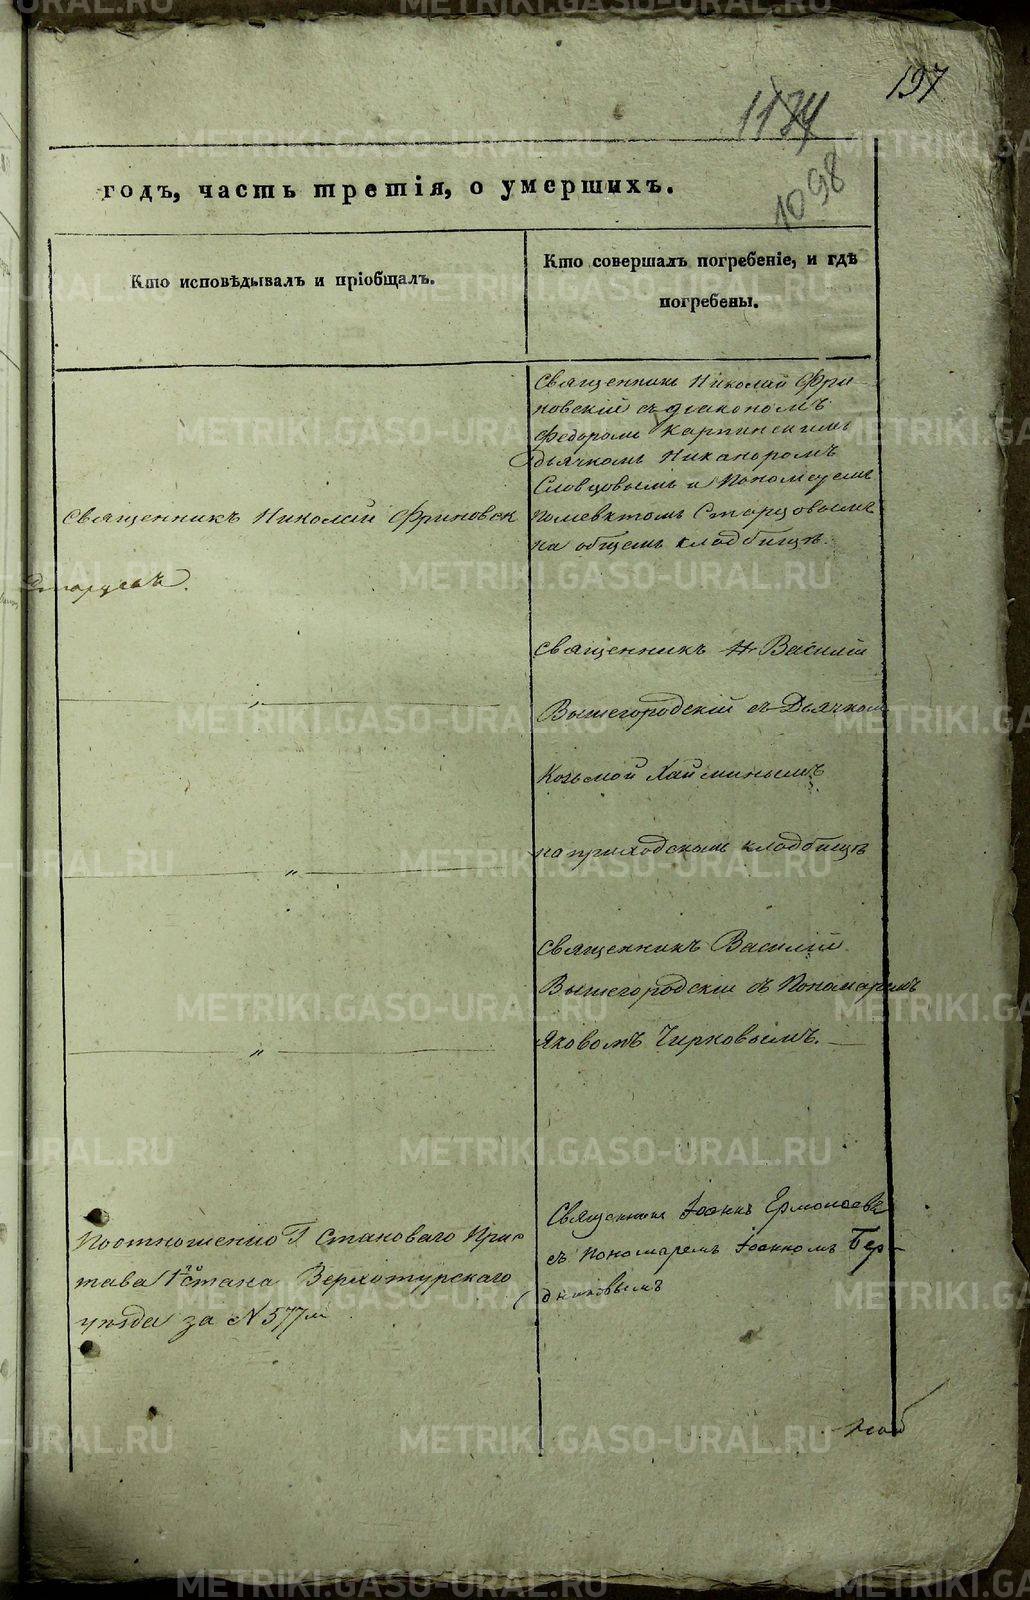 197
1174
1098
годъ, часть третія, о умершихъ.
Кто исповѣдывалъ и пріобщалъ.
Кто совершалъ погребеніе, и гдѣ
погребены.
Священникъ Николай Фриновск
Священникъ Николай Фри-
новскій съ діакономъ
Федоромъ Карпинскимъ
дьячкомъ Никаноромъ
Словцовымъ и Пономаремъ
Старцовымъ
на общемъ кладбищѣ.
Священникъ Василій
Вышегородскій съ Дьячкомъ
Козьмой Хайминымъ
на приходскомъ кладбищѣ
"
Священникъ Василій
Вышегородскій съ Пономаремъ
Яковомъ Чирковымъ.
"
По отношенію Г. Становаго При-
става 1го стана Верхотурскаго
уѣзда за № 577м
Священникъ Іоаннъ Ермолаевъ
съ пономаремъ Іоанномъ Бер-
дниковымъ
METRIKI.GASO-URAL.RU